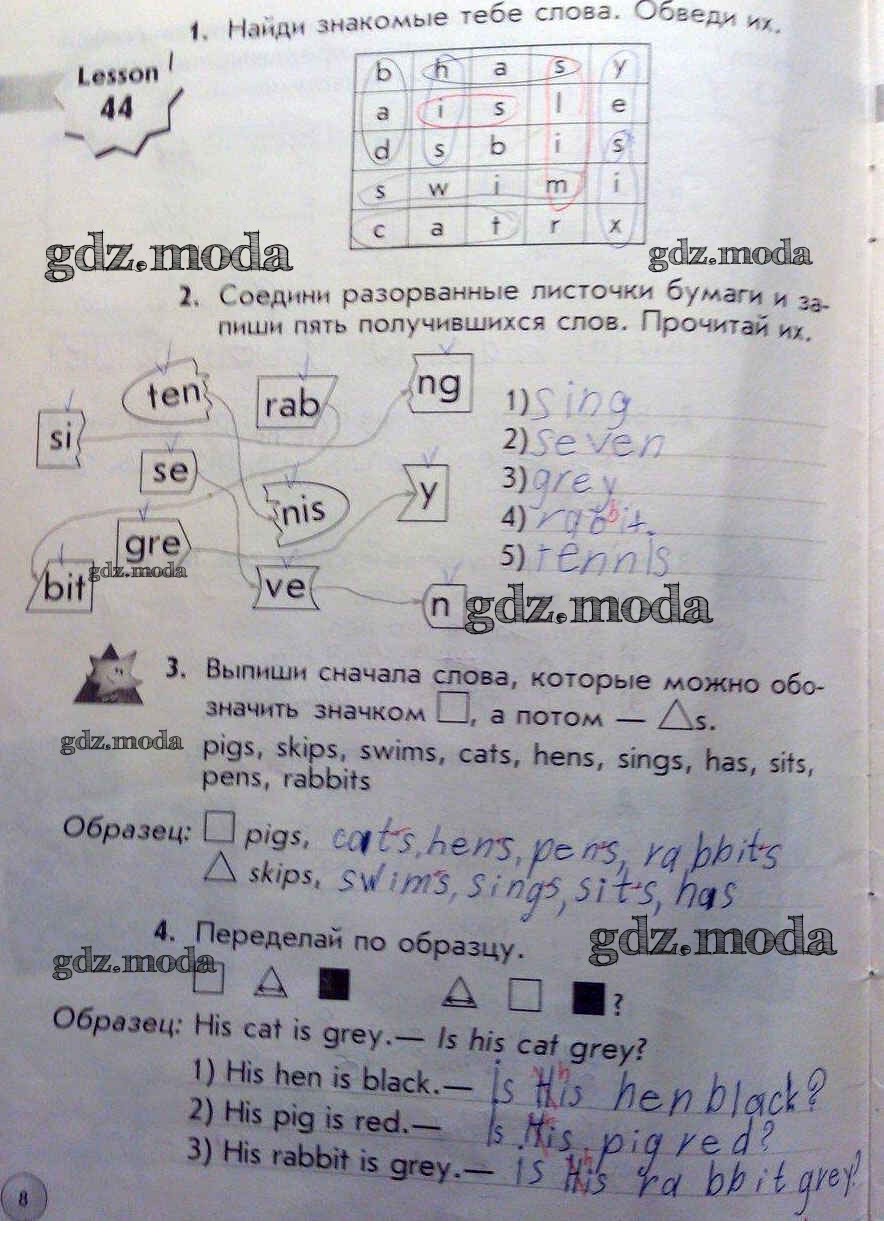 1. Найди знакомые тебе слова. Обведи их.
Lesson
44
b h a s y
a i s l e
d s b i s
s w i m i
c a t r x
gdz.moda
gdz.moda
2. Соедини разорванные листочки бумаги и за-
пиши пять получившихся слов. Прочитай их.
ten
rab
ng
si
se
nis
y
gre
bit
gdz.moda
ve
n
1) sing
2) seven
3) grey
4) rabbit.
5) tennis
gdz.moda
3. Выпиши сначала слова, которые можно обо-
значить значком □, а потом — △s.
gdz.moda
pigs, skips, swims, cats, hens, sings, has, sits,
pens, rabbits
Образец: □ pigs, cats, hens, pens, rabbits
△ skips, swims, sings, sits, has
4. Переделай по образцу.
gdz.moda
gdz.moda
?
Образец: His cat is grey.— Is his cat grey?
1) His hen is black.— is His hen black?
2) His pig is red.— Is His pig red?
3) His rabbit is grey.— is His rabbit grey?
8